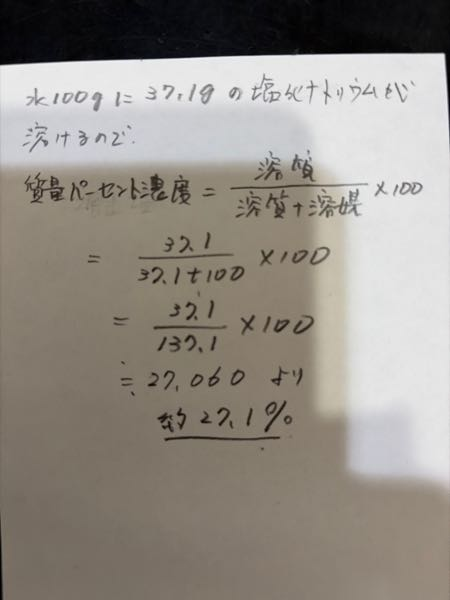 水100gに37.1gの塩化ナトリウムが
溶けるので.
質量パーセント濃度 = 溶質/溶質+溶媒 ×100
= 37.1/37.1+100 ×100
= 37.1/137.1 ×100
≒ 27.060 より
約27.1%